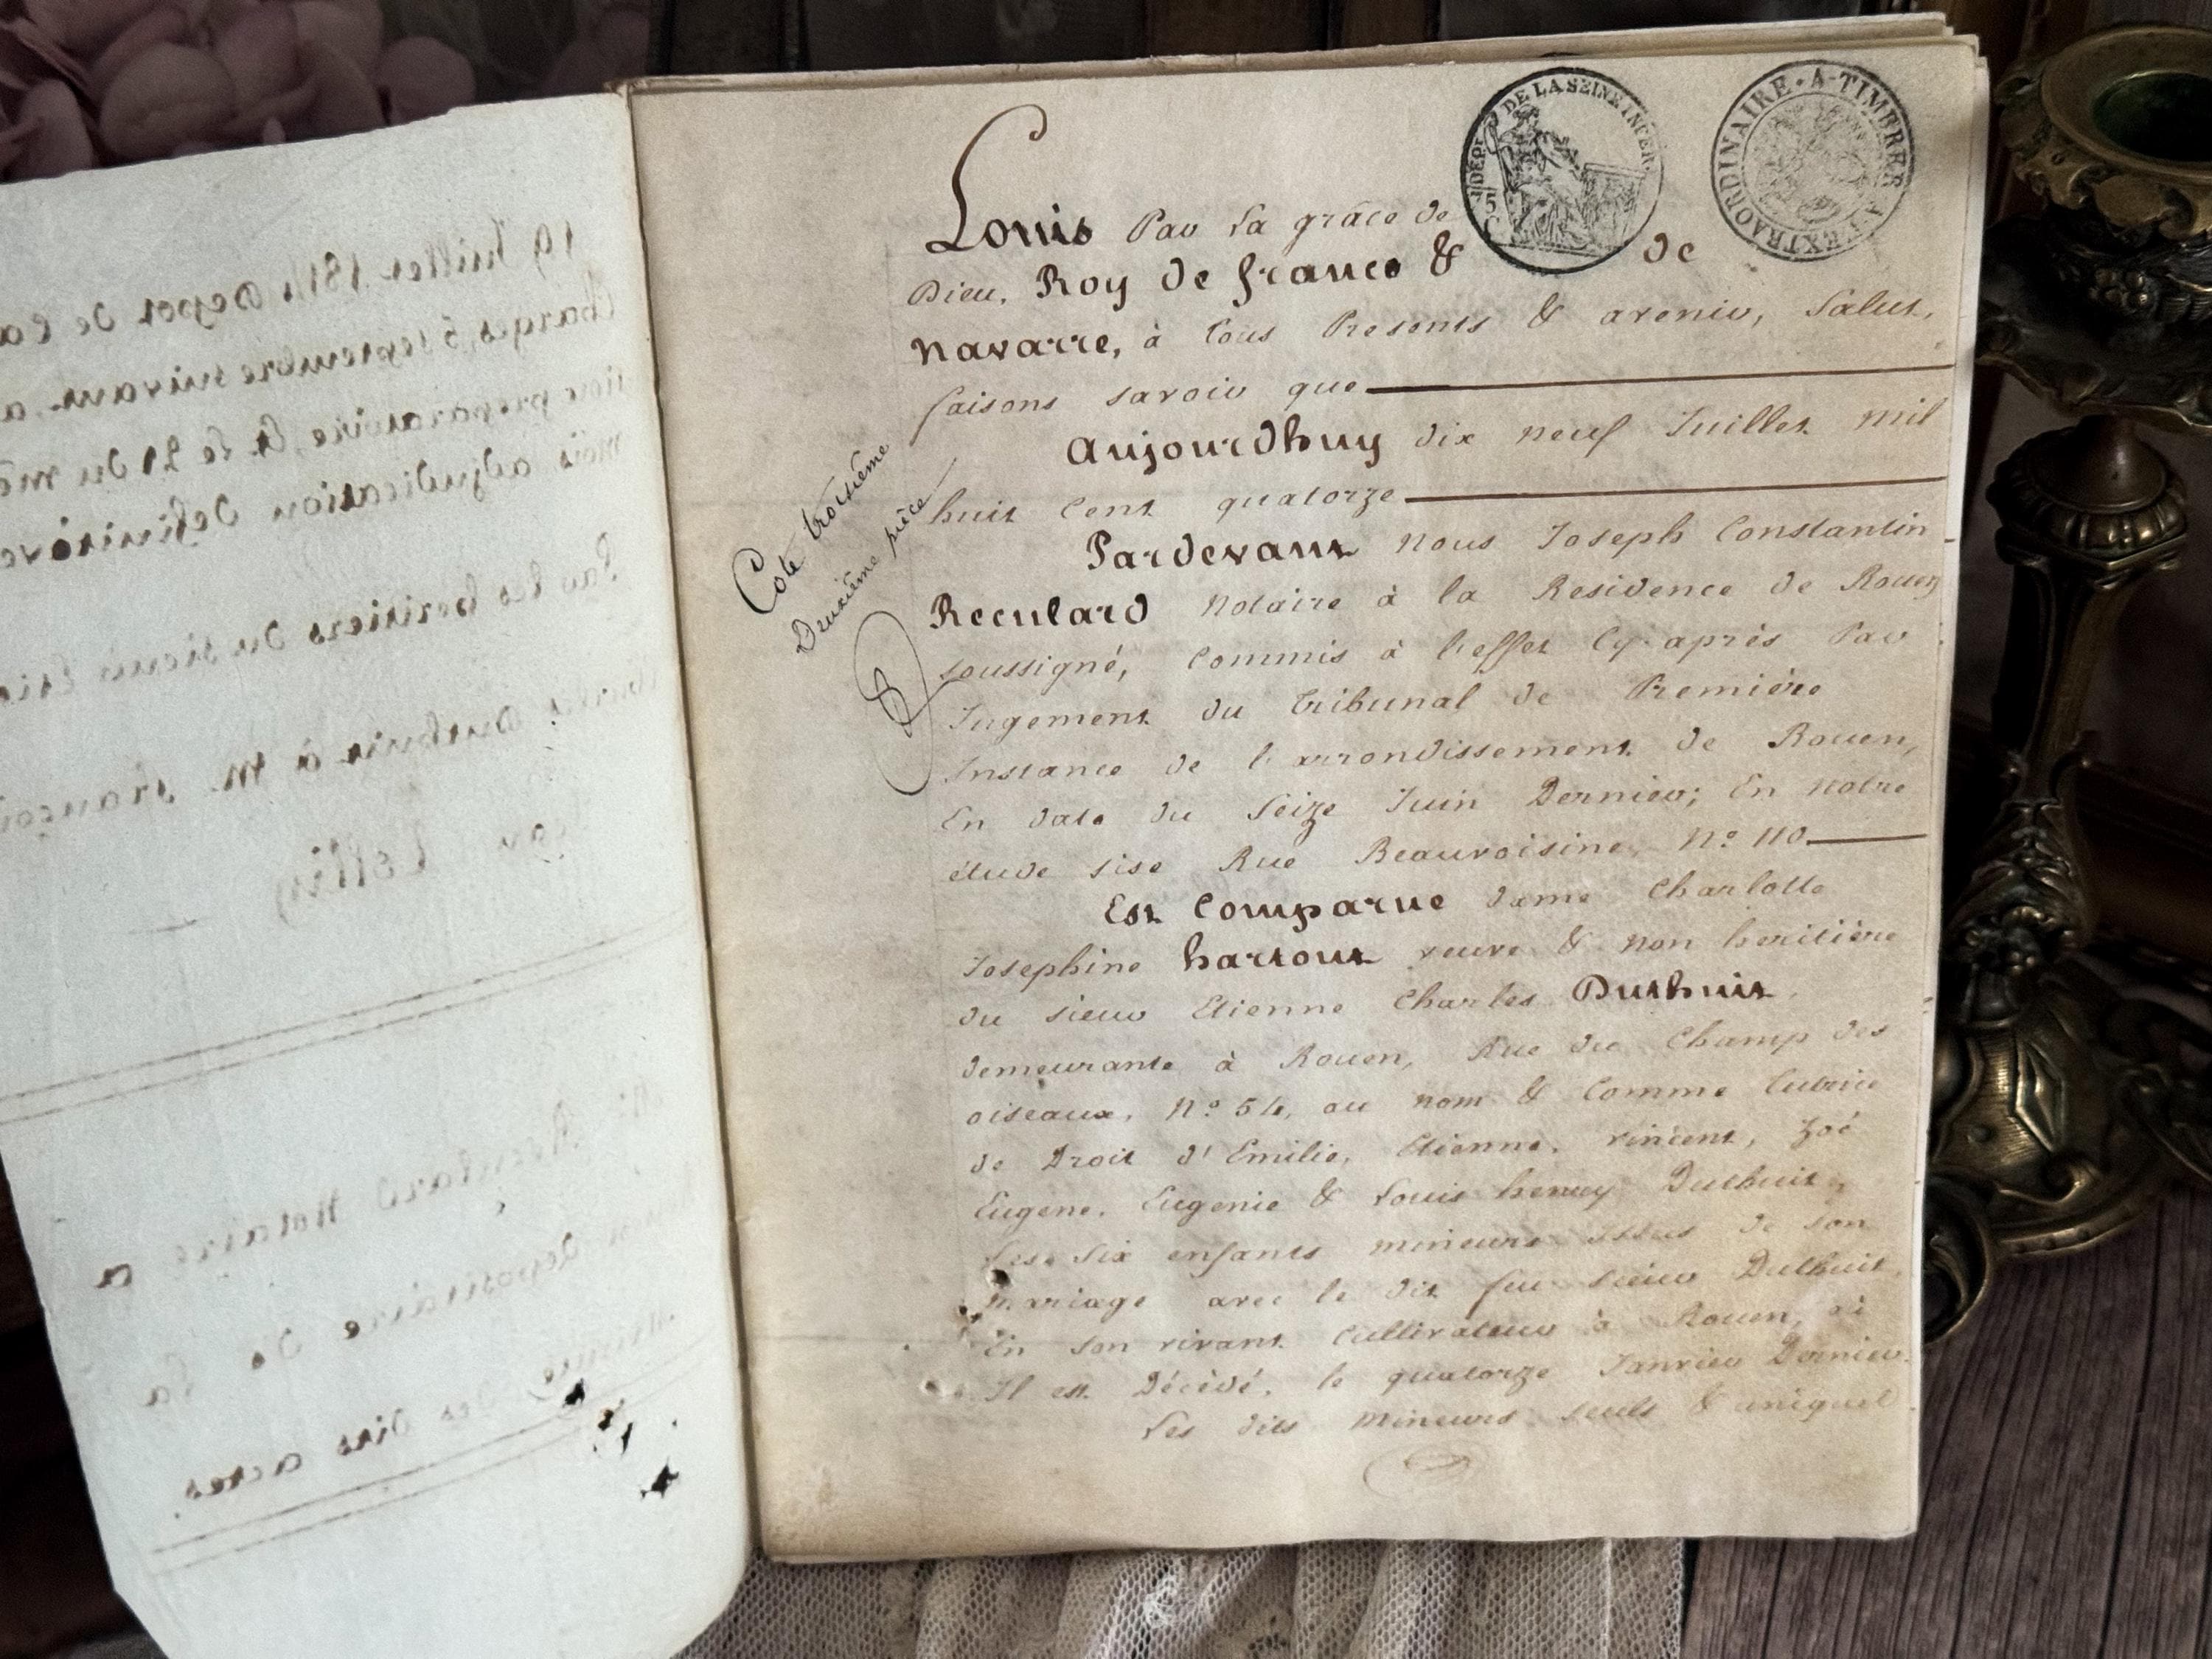 DEPT DE LA SEINE INFER.
5 C
A L'EXTRAORDINAIRE · A-TIMBRER
Louis Par la grâce de
Dieu, Roy de france & de
navarre, à tous Presents & avenir, Salut,
faisons savoir que
Aujourdhuy dix neuf Juillet mil
huit Cent quatorze
Pardevant nous Joseph Constantin
Recculard notaire à la Residence de Rouen
soussigné, Commis à l'effet Cy-après Par
Jugement du tribunal de Première
Instance de l'arrondissement de Rouen,
En date du Seize Juin Dernier; En notre
étude sise Rue Beauvoisine, N° 110
Est Comparue dame Charlotte
Josephine hartout veuve & non heritière
du sieur Etienne Charles Duthuit,
demeurante à Rouen, Rue du Champ des
oiseaux, N° 54, au nom & Comme tutrice
de Droit d'Emilie, Etienne, vincent, Zoé
Eugene, Eugenie & Louis henry Duthuit,
Ses Six enfants mineurs issus de son
mariage avec le dit feu sieur Duthuit,
En son vivant Cultivateur à Rouen, où
Il est Décédé, le quatorze Janvier Dernier.
Les dits mineurs seuls & uniques
Cote troisième
Deuxième pièce
19 Juillet 1814 Depot de
Charges, 5 septembre suivant
preparatoire, & le 21 du
mois adjudication Definitive
Par les heritiers du sieur
Duthuit à M. françois
Notaire a
depositaire de la
des dits actes